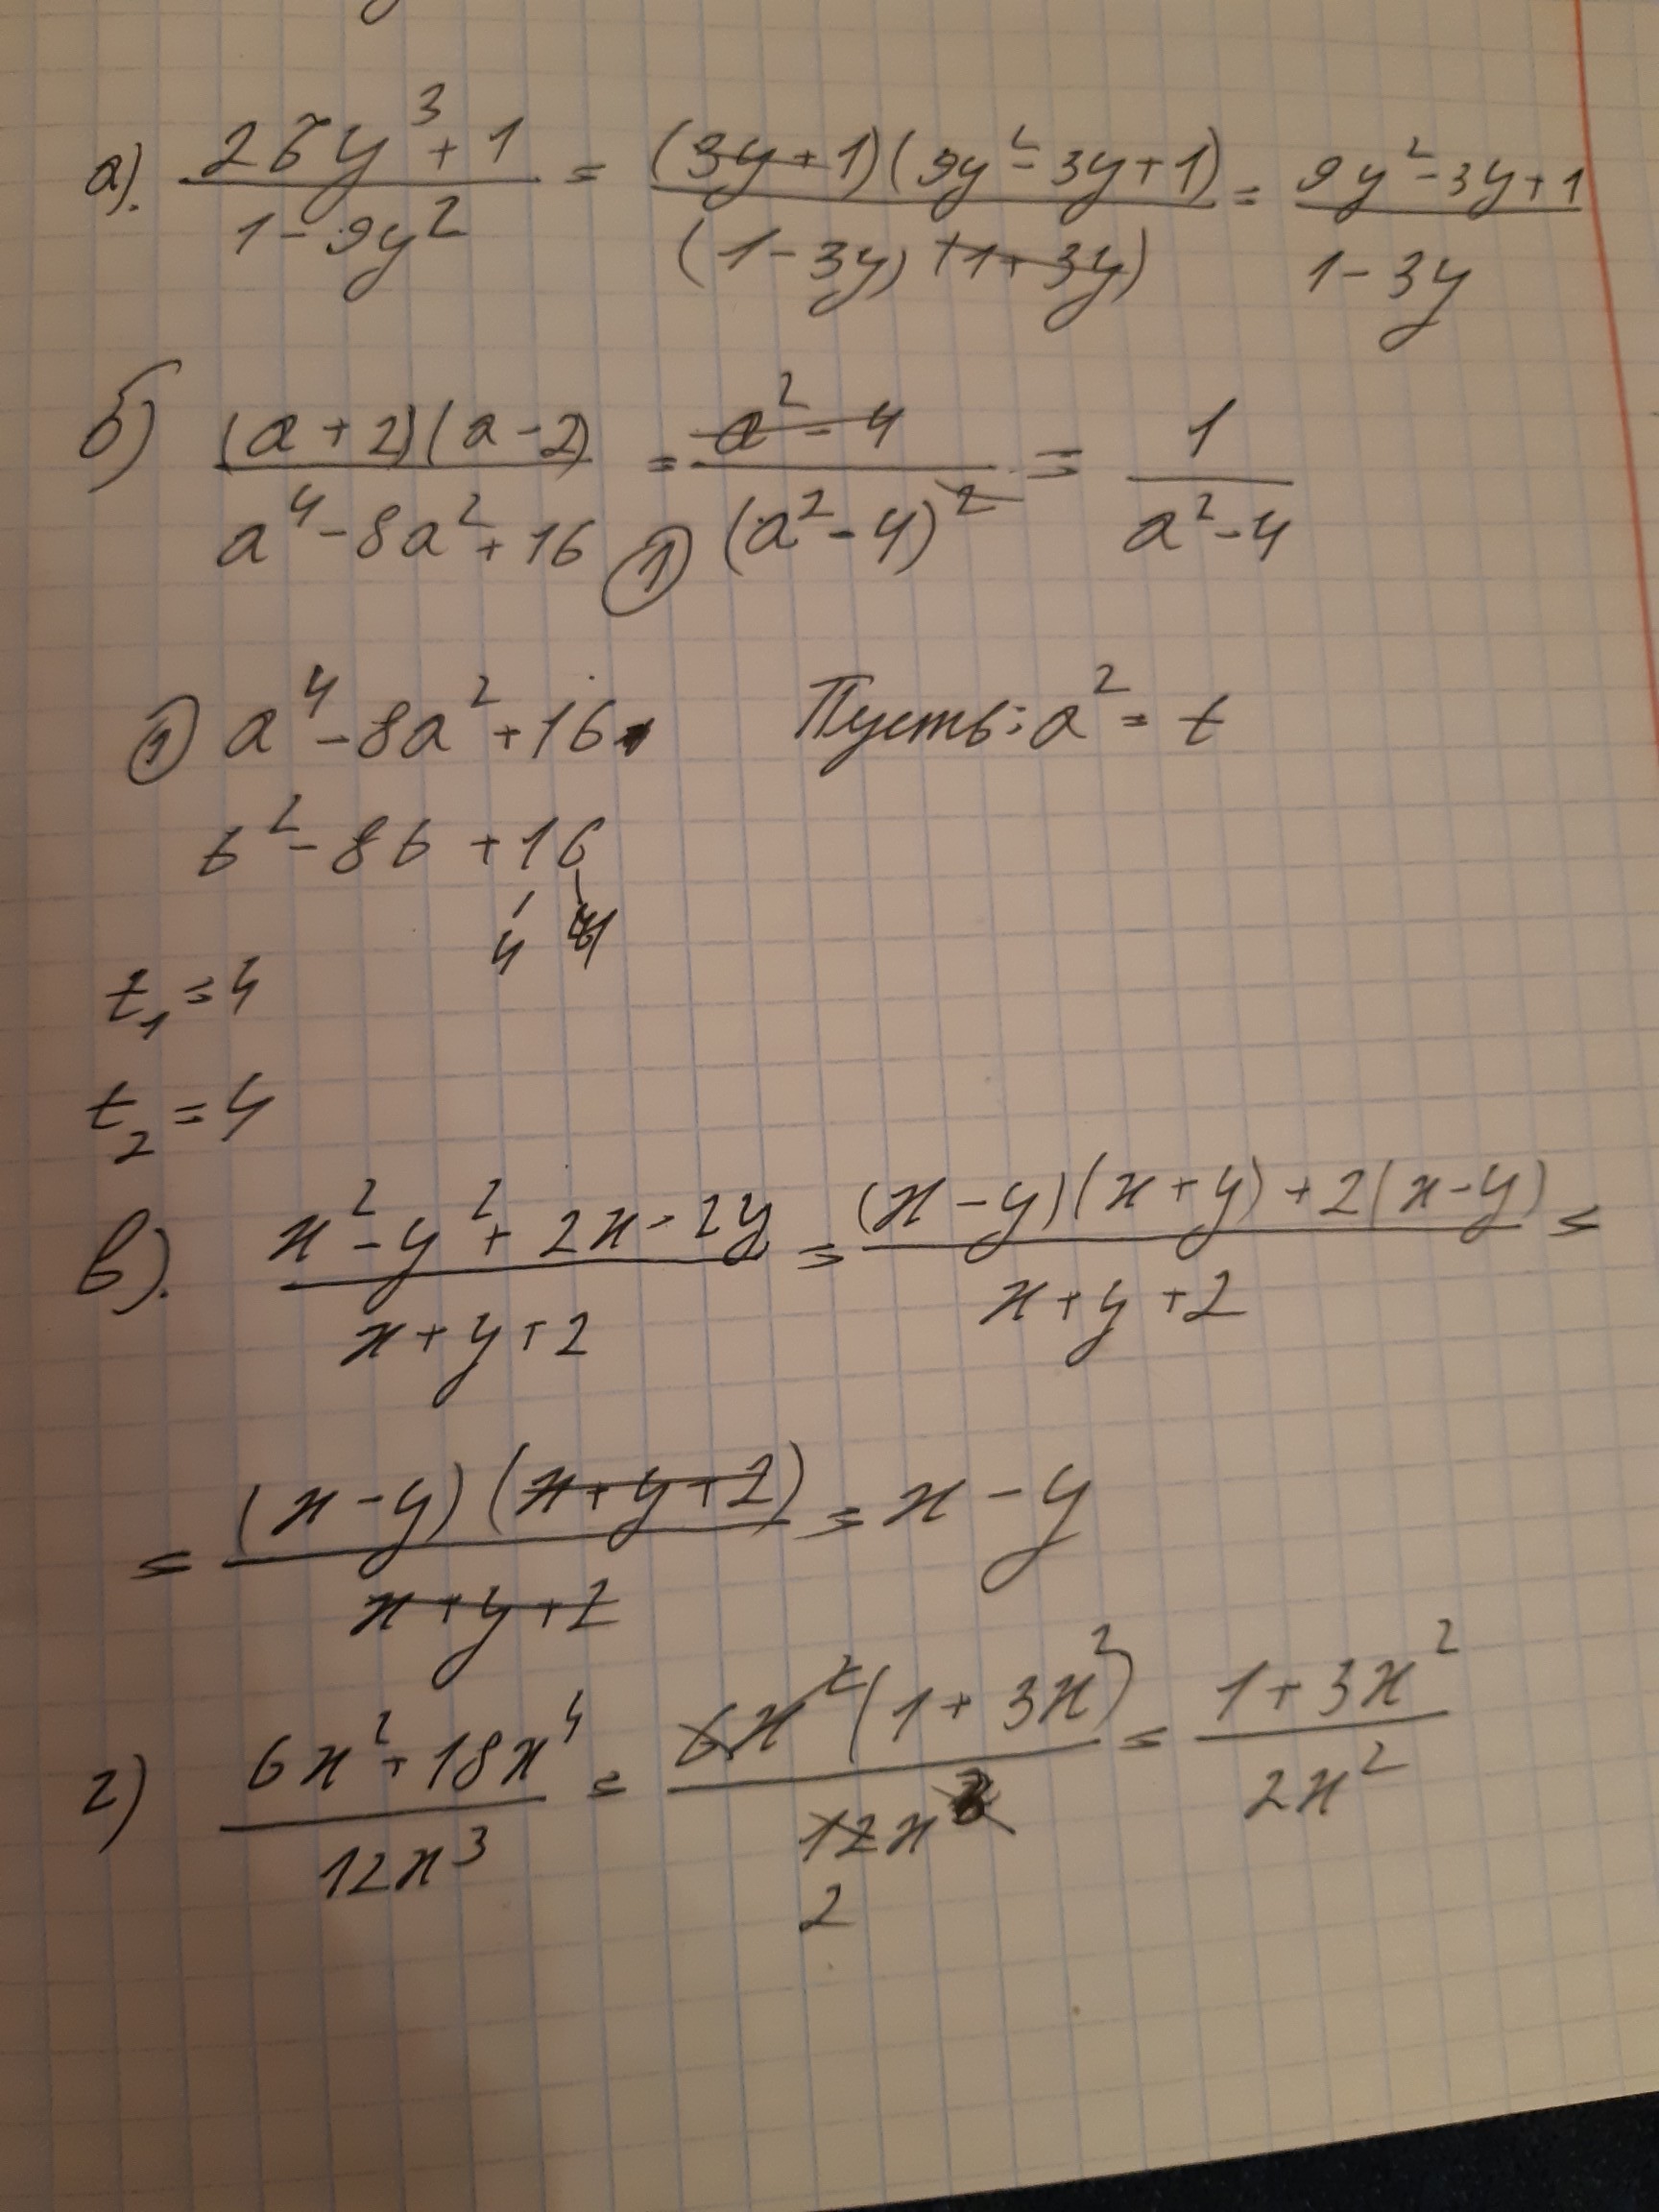 а). (27y³+1)/(1-9y²) = ((3y+1)(9y²-3y+1))/((1-3y)(1+3y)) = (9y²-3y+1)/(1-3y)
б) ((a+2)(a-2))/(a⁴-8a²+16) = ① (a²-4)/(a²-4)² = 1/(a²-4)
① a⁴-8a²+16 Пусть: a² = t
t²-8t+16
4 4
t₁=4
t₂=4
в). (x²-y²+2x-2y)/(x+y+2) = ((x-y)(x+y)+2(x-y))/(x+y+2) =
= ((x-y)(x+y+2))/(x+y+2) = x-y
г) (6x²+18x⁴)/(12x³) = (6x²(1+3x²))/(12x³) = (1+3x²)/(2x²)
2